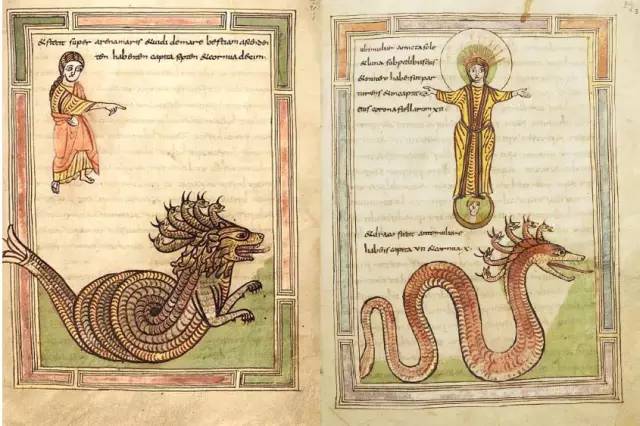 &stetit super arenamaris &uidi demare bestiam ascenden
tem habentem capita septem &cornua decem.
ubimulier amicta sole
&luna sub pedibus eius
&in capite
eius corona stellarum xii
&draco stetit ante muliere
habens capita vii &cornua x.